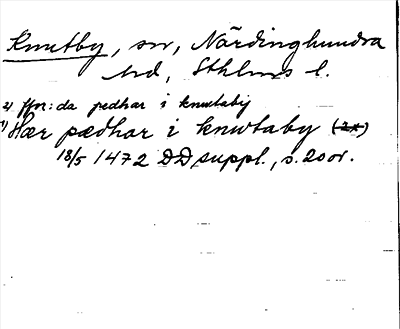 Knutby, sn, Närdinghundra
hd, Sthlms l.
2) ffor: da pedhar i knwtabij
1) Hær pædhar i knwtaby (2x)
18/5 1472 DD suppl., s. 200r.